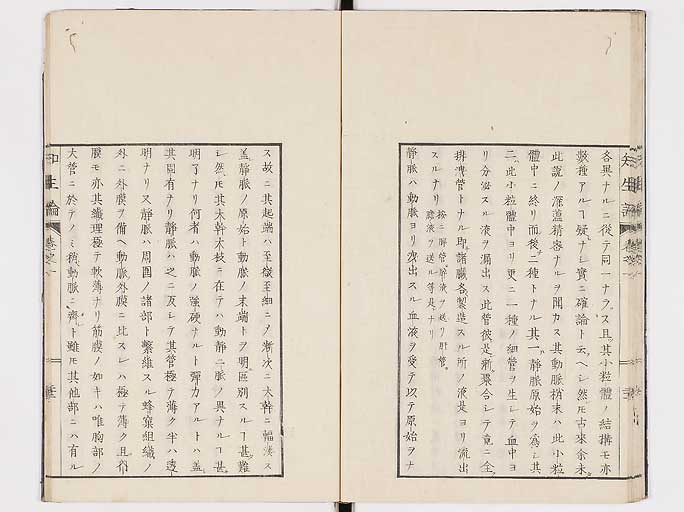 各異ナルニ從テ同一ナラス且其小粒體ノ結搆モ亦
數種アルヿ疑ナシ實ニ確論ト云ヘシ然モ古來余未
此說ノ深薀精密ナルヲ聞カス其動脈梢末ハ此小粒
體中ニ終リ而後二種トナル其一靜脈原始ヲ爲シ其
二此小粒體中ヨリ更ニ一種ノ細管ヲ生シテ血中ヨ
リ分泌スル液ヲ漏出ス此管彼是漸聚合シテ竟ニ全
排泄管トナル即諸臓各製造スル所ノ液是ヨリ流出
スルナリ
按ニ腎管尿液ヲ送リ肝管
膽液ヲ送ル等是ナリ
靜脈ハ動脈ヨリ突出スル血液ヲ受テ以テ原始ヲナ
知生論
卷之一
ス故ニ其起端ハ至微至細ニノ漸次ニ大幹ニ輻湊ス
蓋靜脈ノ原始ト動脈ノ末端トヲ明區別スルヿ甚難
シ然モ其大幹大枝ニ在テハ動靜二脈ノ異ナルヿ甚
明了ナリ何者ハ動脈ノ强硬ナルト彈力アルトハ蓋
其固有ナリ靜脈ハ之ニ反シテ其管極テ薄ク半ハ透
明ナリス靜脈ハ周囲ノ諸部ト繫維スル蜂窠組織ノ
外ニ外膜ヲ備ヘ動脈外膜ニ比スレハ極テ薄ク且
膜モ亦其纎理極テ軟薄ナリ筋膜ノ如キハ唯胸部ノ
大管ニ於テノミ稍動脈ニ齊ト雖モ其他部ニハ有ル
知生論
卷之一